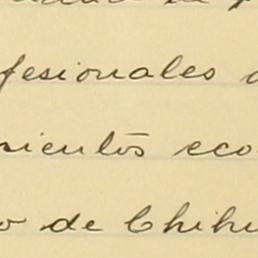 fesionales
mientos eco
o de Chihu